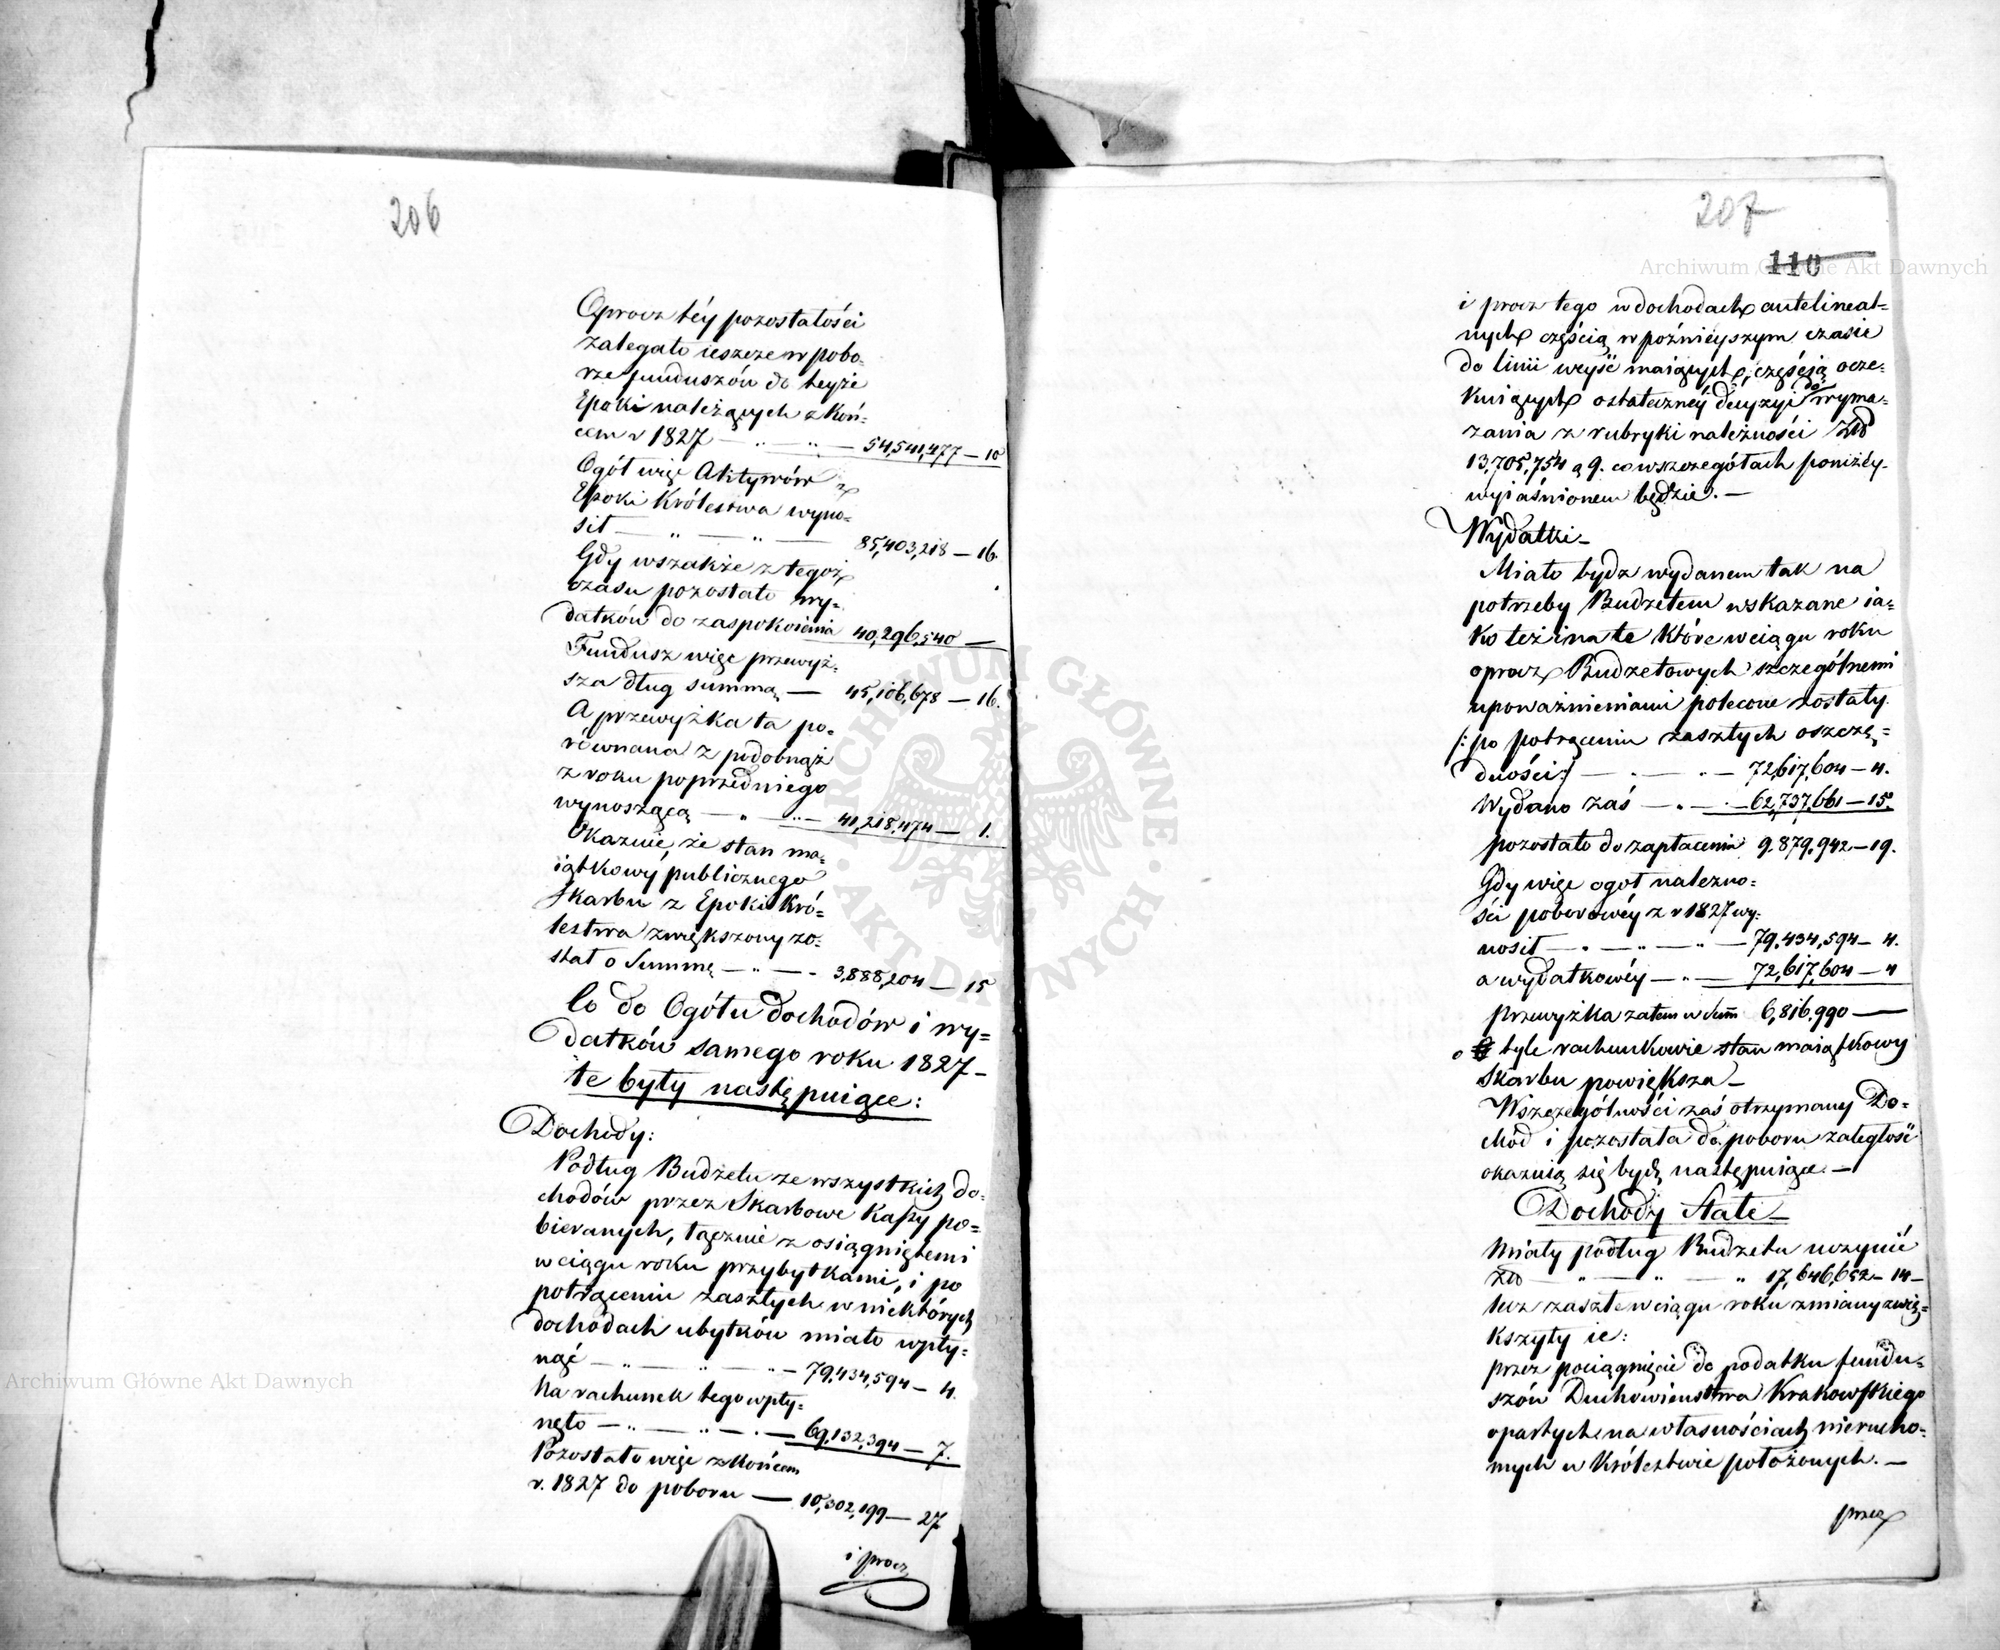 206
Oprocz téy pozostałości
zalegało ieszcze w pobo-
rze funduszów do teyże
Epoki należących z Koń-
cem r 1827 — 54,541,477 — 10
Ogół więc Aktywów z
Epoki Królestwa wyno-
sił — 85,403,218 — 16.
Gdy wszakże z tegoż
czasu pozostało wy-
datków do zaspokoienia 40,296,540 —
Fundusz więc przewyż-
sza dług summą — 45,106,678 — 16.
A przewyżka ta po-
równana z podobnąż
z roku poprzedniego
wynoszącą — 41,218,474 — 1.
Okazuie, że stan ma-
iątkowy publicznego
Skarbu z Epoki Kró-
lestwa zwiększony zo-
stał o Summę — 3,888,204 — 15
Co do Ogółu dochodów i wy-
datków samego roku 1827 —
te były następuiące:
Dochody:
Podług Budżetu ze wszystkich do-
chodów przez Skarbowe Kassy po-
bieranych, łącznie z osiągniętemi
w ciągu roku przybytkami, i po
potrąceniu zaszłych w niektórych
dochodach ubytków miało wpły-
nąć — 79,434,594 — 4.
Na rachunek tego wpły-
nęło — 69,132,394 — 7.
Pozostało więc z Końcem
r. 1827 do poboru — 10,302,199 — 27
i procz
207
110
i procz tego w dochodach antelineal-
nych częścią w poźnieyszym czasie
do linii weyść maiących, częścią ocze-
kuiących ostateczney decyzyi do wyma-
zania z rubryki należności Złp
13,705,754 g 9. co w szczegółach poniżéy
wyiaśnionem będzie. —
Wydatki —
Miało bydz wydanem tak na
potrzeby Budżetem wskazane ia-
ko też i na te które w ciągu roku
oprocz Budżetowych szczególnemi
upoważnieniami polecone zostały
/: po potrąceniu zaszłych oszczę-
dności :/ — 72,617,604 — 4.
Wydano zaś — 62,737,661 — 15.
pozostało do zapłacenia 9,879,942 — 19.
Gdy więc ogół należno-
ści poborowéy z r 1827 wy-
nosił — 79,434,594 — 4.
a wydatkowéy — 72,617,604 — 4
przewyżka zatem w Summ 6,816,990 —
o tyle rachunkowie stan maiątkowy
Skarbu powiększa —
Wszczególności zaś otrzymany Do-
chód i pozostała do poboru zaległość
okazuią się bydź następuiące. —
Dochody Stałe —
Miały podług Budżetu uczynić
Złp — 17,646,652 — 14 —
lecz zaszłe w ciągu roku zmiany zwię-
kszyły ie:
przez pociągnięcie do podatku fundu-
szów Duchowieństwa Krakowskiego
opartych na własnościach nierucho-
mych w Królestwie położonych. —
przez
Archiwum Główne Akt Dawnych
Archiwum Główne Akt Dawnych
ARCHIWUM GŁÓWNE · AKT DAWNYCH ·